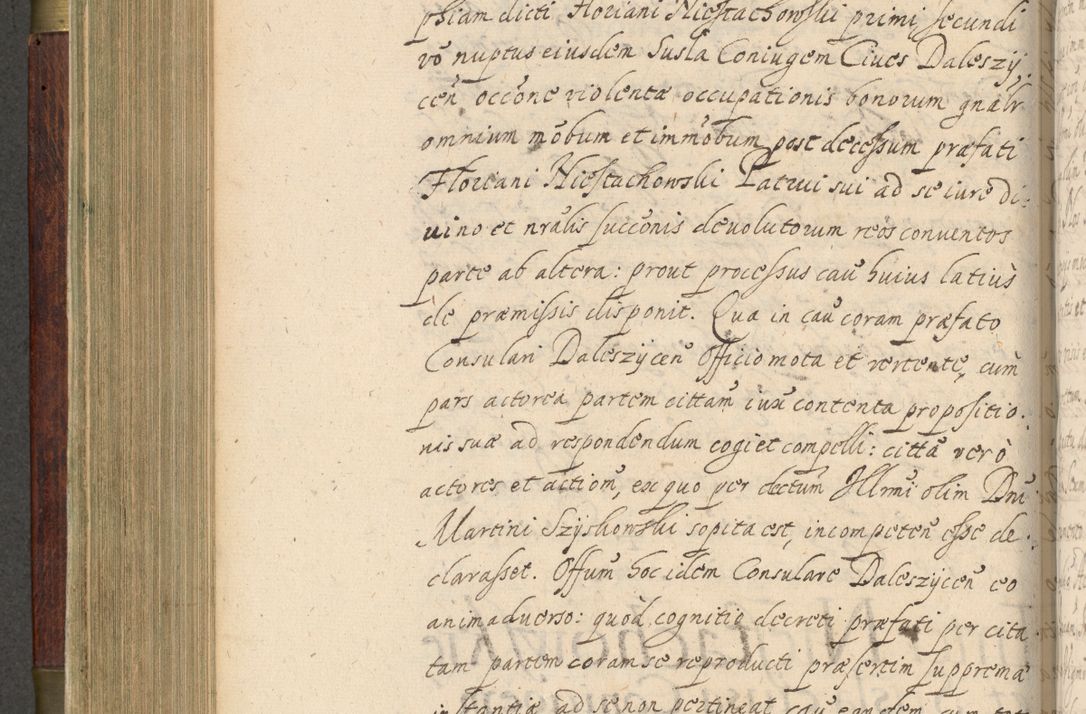 phiam dicti Floriani Niestachowski primi secundi
vō nuptus eiusdem Susla Coniugem Ciues Daleszy-
ceñ occōne violentæ occupationis bonorum gnālr
omnium mōbum et immōbum post decessum præfati
Floriani Niestachowski Patrui sui ad se iure di-
uino et nrālis succōnis deuolutorum reos conuentos
parte ab altera: prout processus caū huius latius
de præmissis disponit. Qua in caū coram præfato
Consulari Daleszyceñ Officio mota et vertente, cum
pars actorea partem cittam iux contenta propositio-
nis suæ ad respondendum cogi et compelli: citta verò
actores et action̄, ex quo per dectum Illrmi olim Dni
Martini Szyskowski sopita est, incompeteñ esse de-
clarasset. Offum hoc idem Consulare Daleszyceñ eo
animaduerso: quod cognitio decreti præfati per cita
tam partem coram se reproducti præsertim supprema
instantia ad se non pertineat